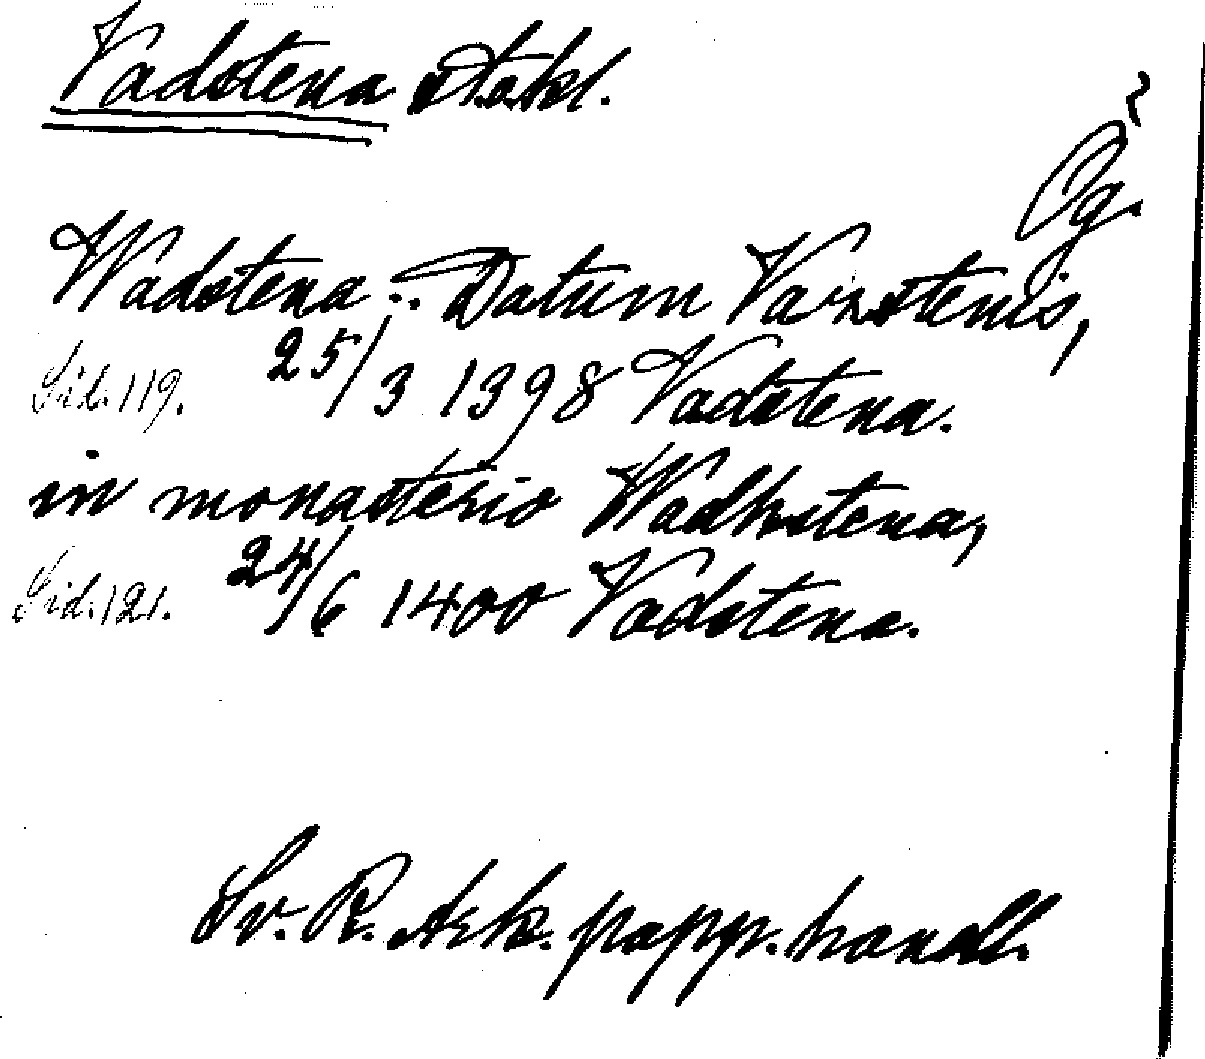 Vadstena stakl.
Ög.
Wadstena :- Datum Vazstenis,
Sid. 119. 25/3 1398 Vadstena.
in monasterio Wadhstena,
Sid. 121. 24/6 1400 Vadstena.
Sv. R. Ark. papp. handl.